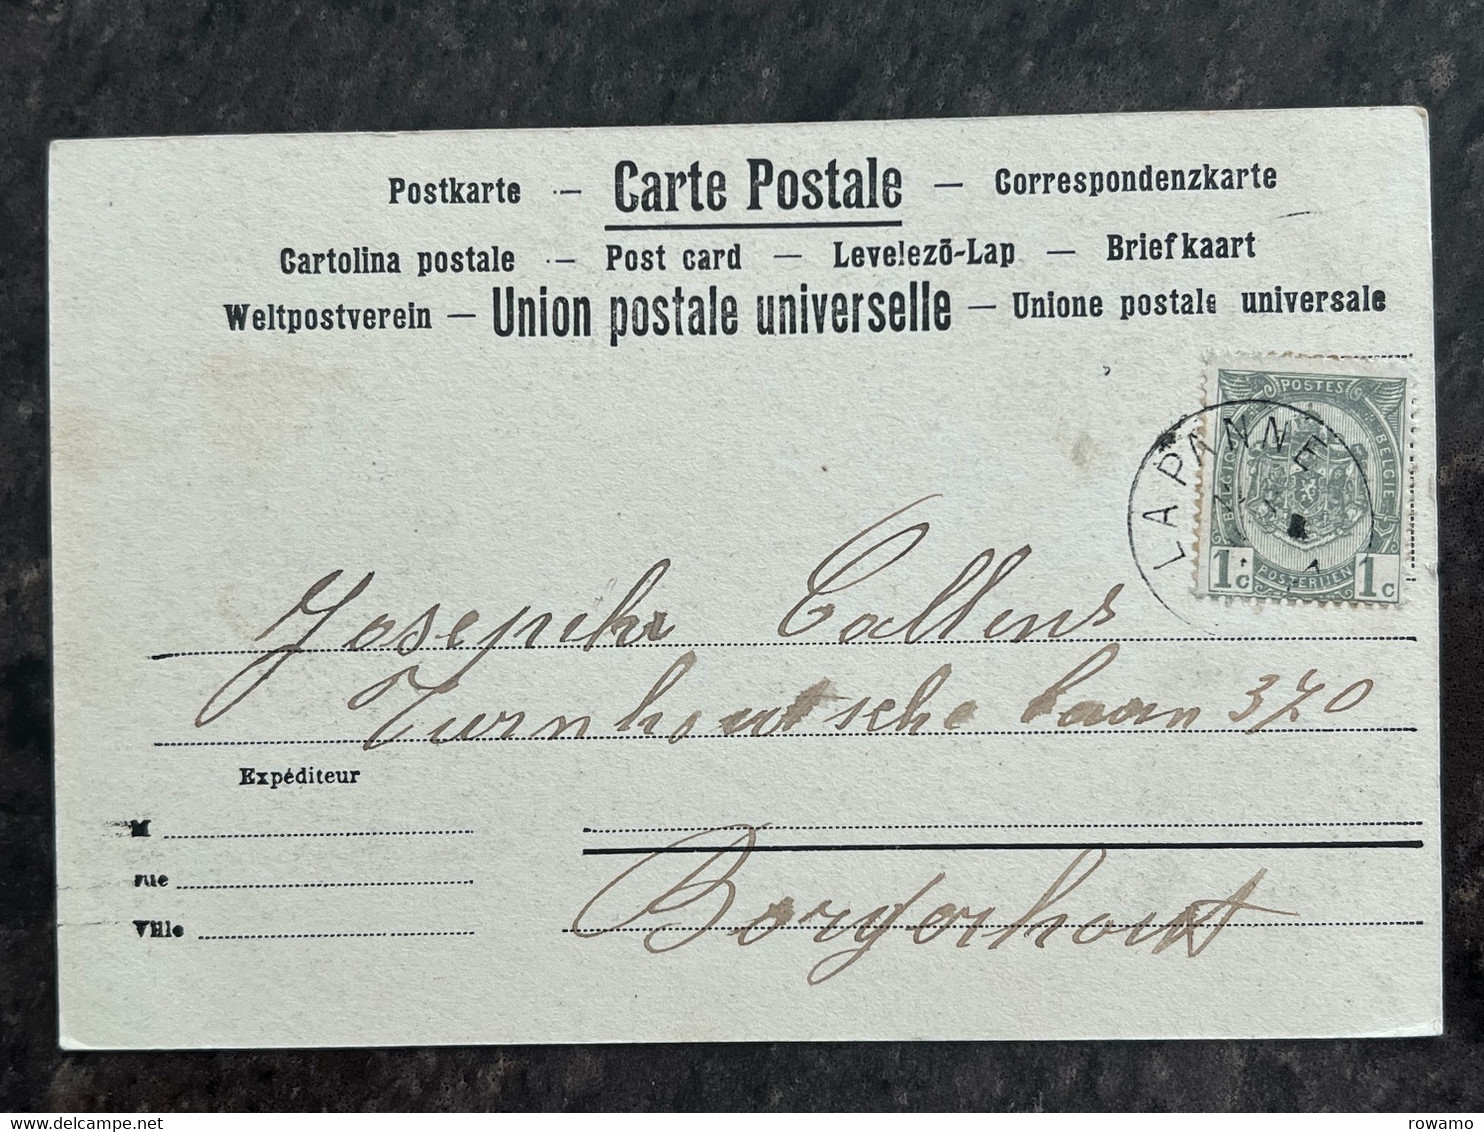 Postkarte — Carte Postale — Correspondenzkarte
Cartolina postale — Post card — Levelező-Lap — Briefkaart
Weltpostverein — Union postale universelle — Unione postale universale
POSTES BELGIE
BELGIQUE
POSTERIJEN
1c 1c
LA PANNE
Josephe Callens
Turnhoutsche baan 370
Expéditeur
M
rue
Ville
Borgerhout
rowamo